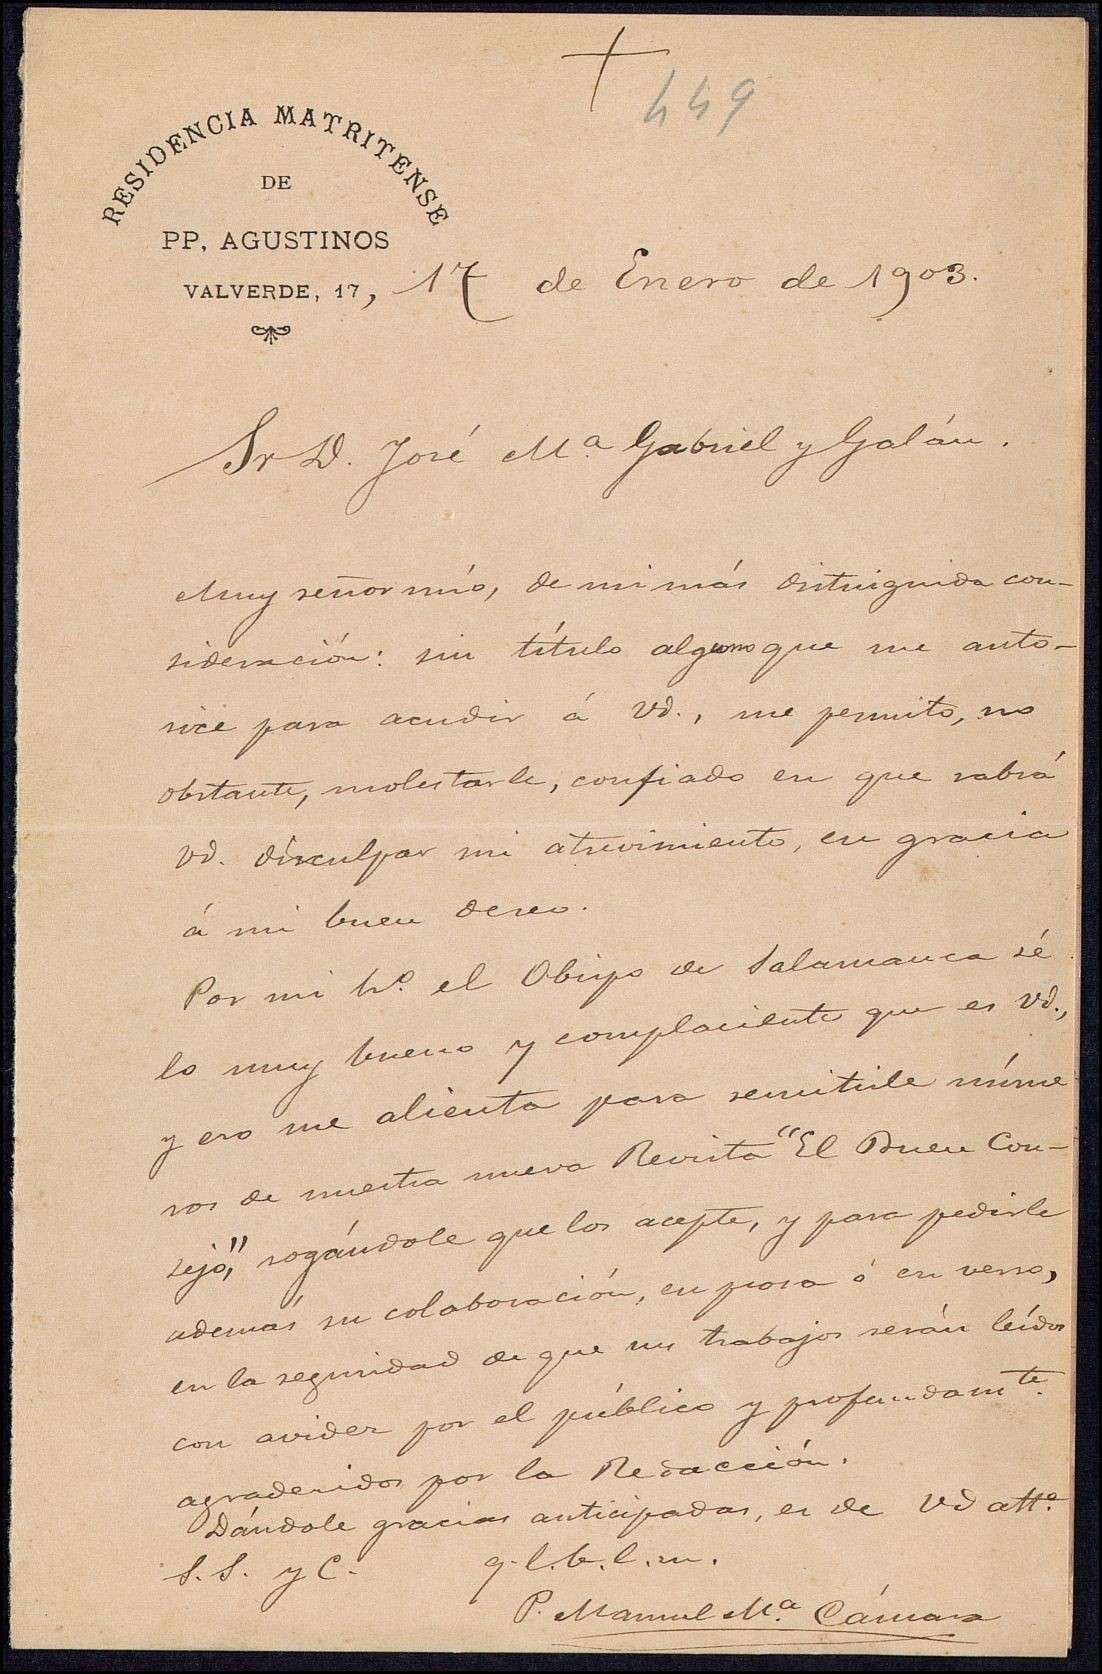 449
RESIDENCIA MATRITENSE
DE
PP. AGUSTINOS
VALVERDE, 17, 17 de Enero de 1903.
Sr D. José Mª Gabriel y Galán.
Muy señor mío, de mi más distinguida con-
sideración: sin título alguno que me auto-
rice para acudir á Vd., me permito, no
obstante, molestarle, confiado en que sabrá
Vd. disculpar mi atrevimiento, en gracia
á mi buen deseo.
Por mi hº. el Obispo de Salamanca sé
lo muy bueno y complaciente que es Vd.,
y eso me alienta para remitirle núme
ros de nuestra nueva Revista "El Buen Con-
sejo," rogándole que los acepte, y para pedirle
además su colaboración, en prosa ó en verso,
en la seguridad de que sus trabajos serán leídos
con avidez por el público y profundamte.
agradecidos por la Redacción.
Dándole gracias anticipadas, es de Vd attº.
S. S. y C. q. l. b. l. m.
P. Manuel Mª Cámara